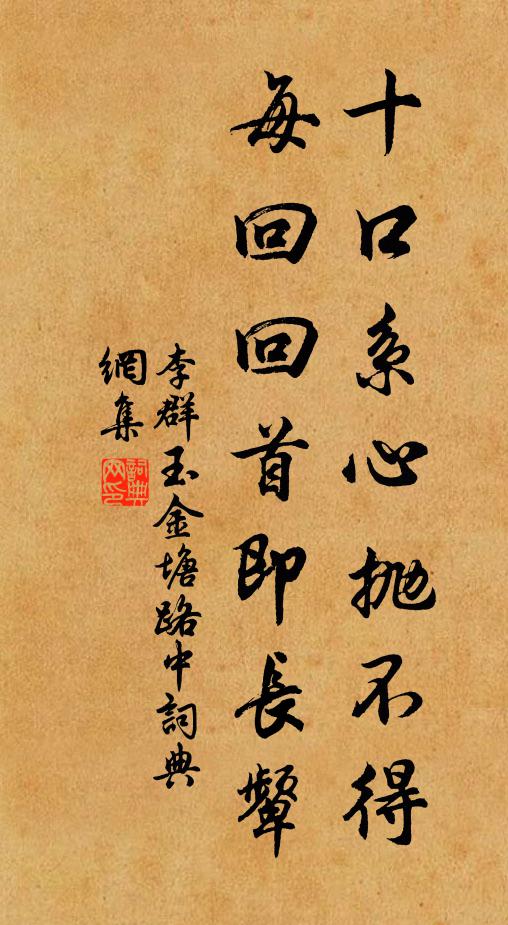 十口系心抛不得
每回回首即長顰
李群玉金塘路中詞典
網集
詞典網印